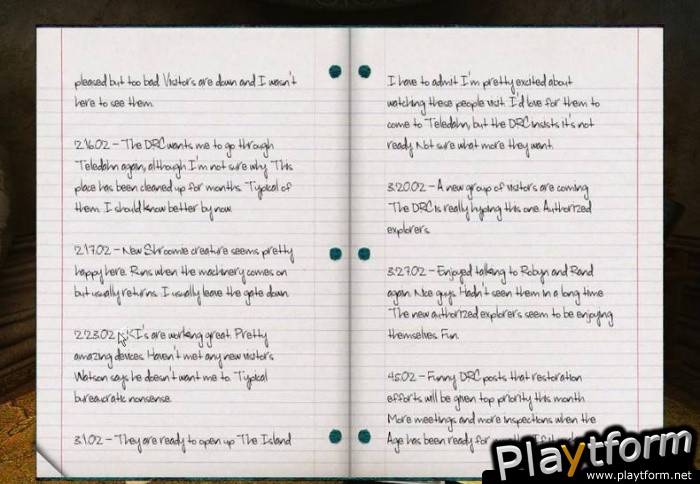 pleased but too bad. Visitors are down and I wasn't
here to see them.
2.16.02 - The DRC wants me to go through
Teledahn again, although I'm not sure why. This
place has been cleaned up for months. Typical of
them. I should know better by now.
2.17.02 - New Shroomie creature seems pretty
happy here. Runs when the machinery comes on
but usually returns. I usually leave the gate down.
2.23.02 - KI's are working great. Pretty
amazing devices. Haven't met any new visitors.
Watson says he doesn't want me to. Typical
bureaucratic nonsense.
3.1.02 - They are ready to open up The Island
I have to admit I'm pretty excited about
watching these people visit. I'd love for them to
come to Teledahn, but the DRC insists it's not
ready. Not sure what more they want.
3.20.02 - A new group of visitors are coming.
The DRC is really hyping this one. Authorized
explorers.
3.27.02 - Enjoyed talking to Robyn and Rand
again. Nice guys. Hadn't seen them in a long time.
The new authorized explorers seem to be enjoying
themselves. Fun.
4.5.02 - Funny DRC posts that restoration
efforts will be given top priority this month.
More meetings and more inspections when the
Age has been ready for
Playtform
www.playtform.net